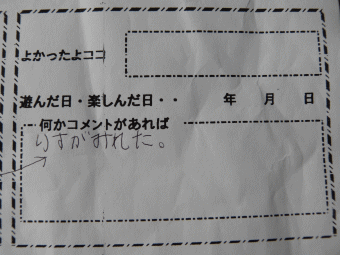 よかったよココ
遊んだ日・楽しんだ日・・　　年　　月　　日
何かコメントがあれば
りすがみれた。